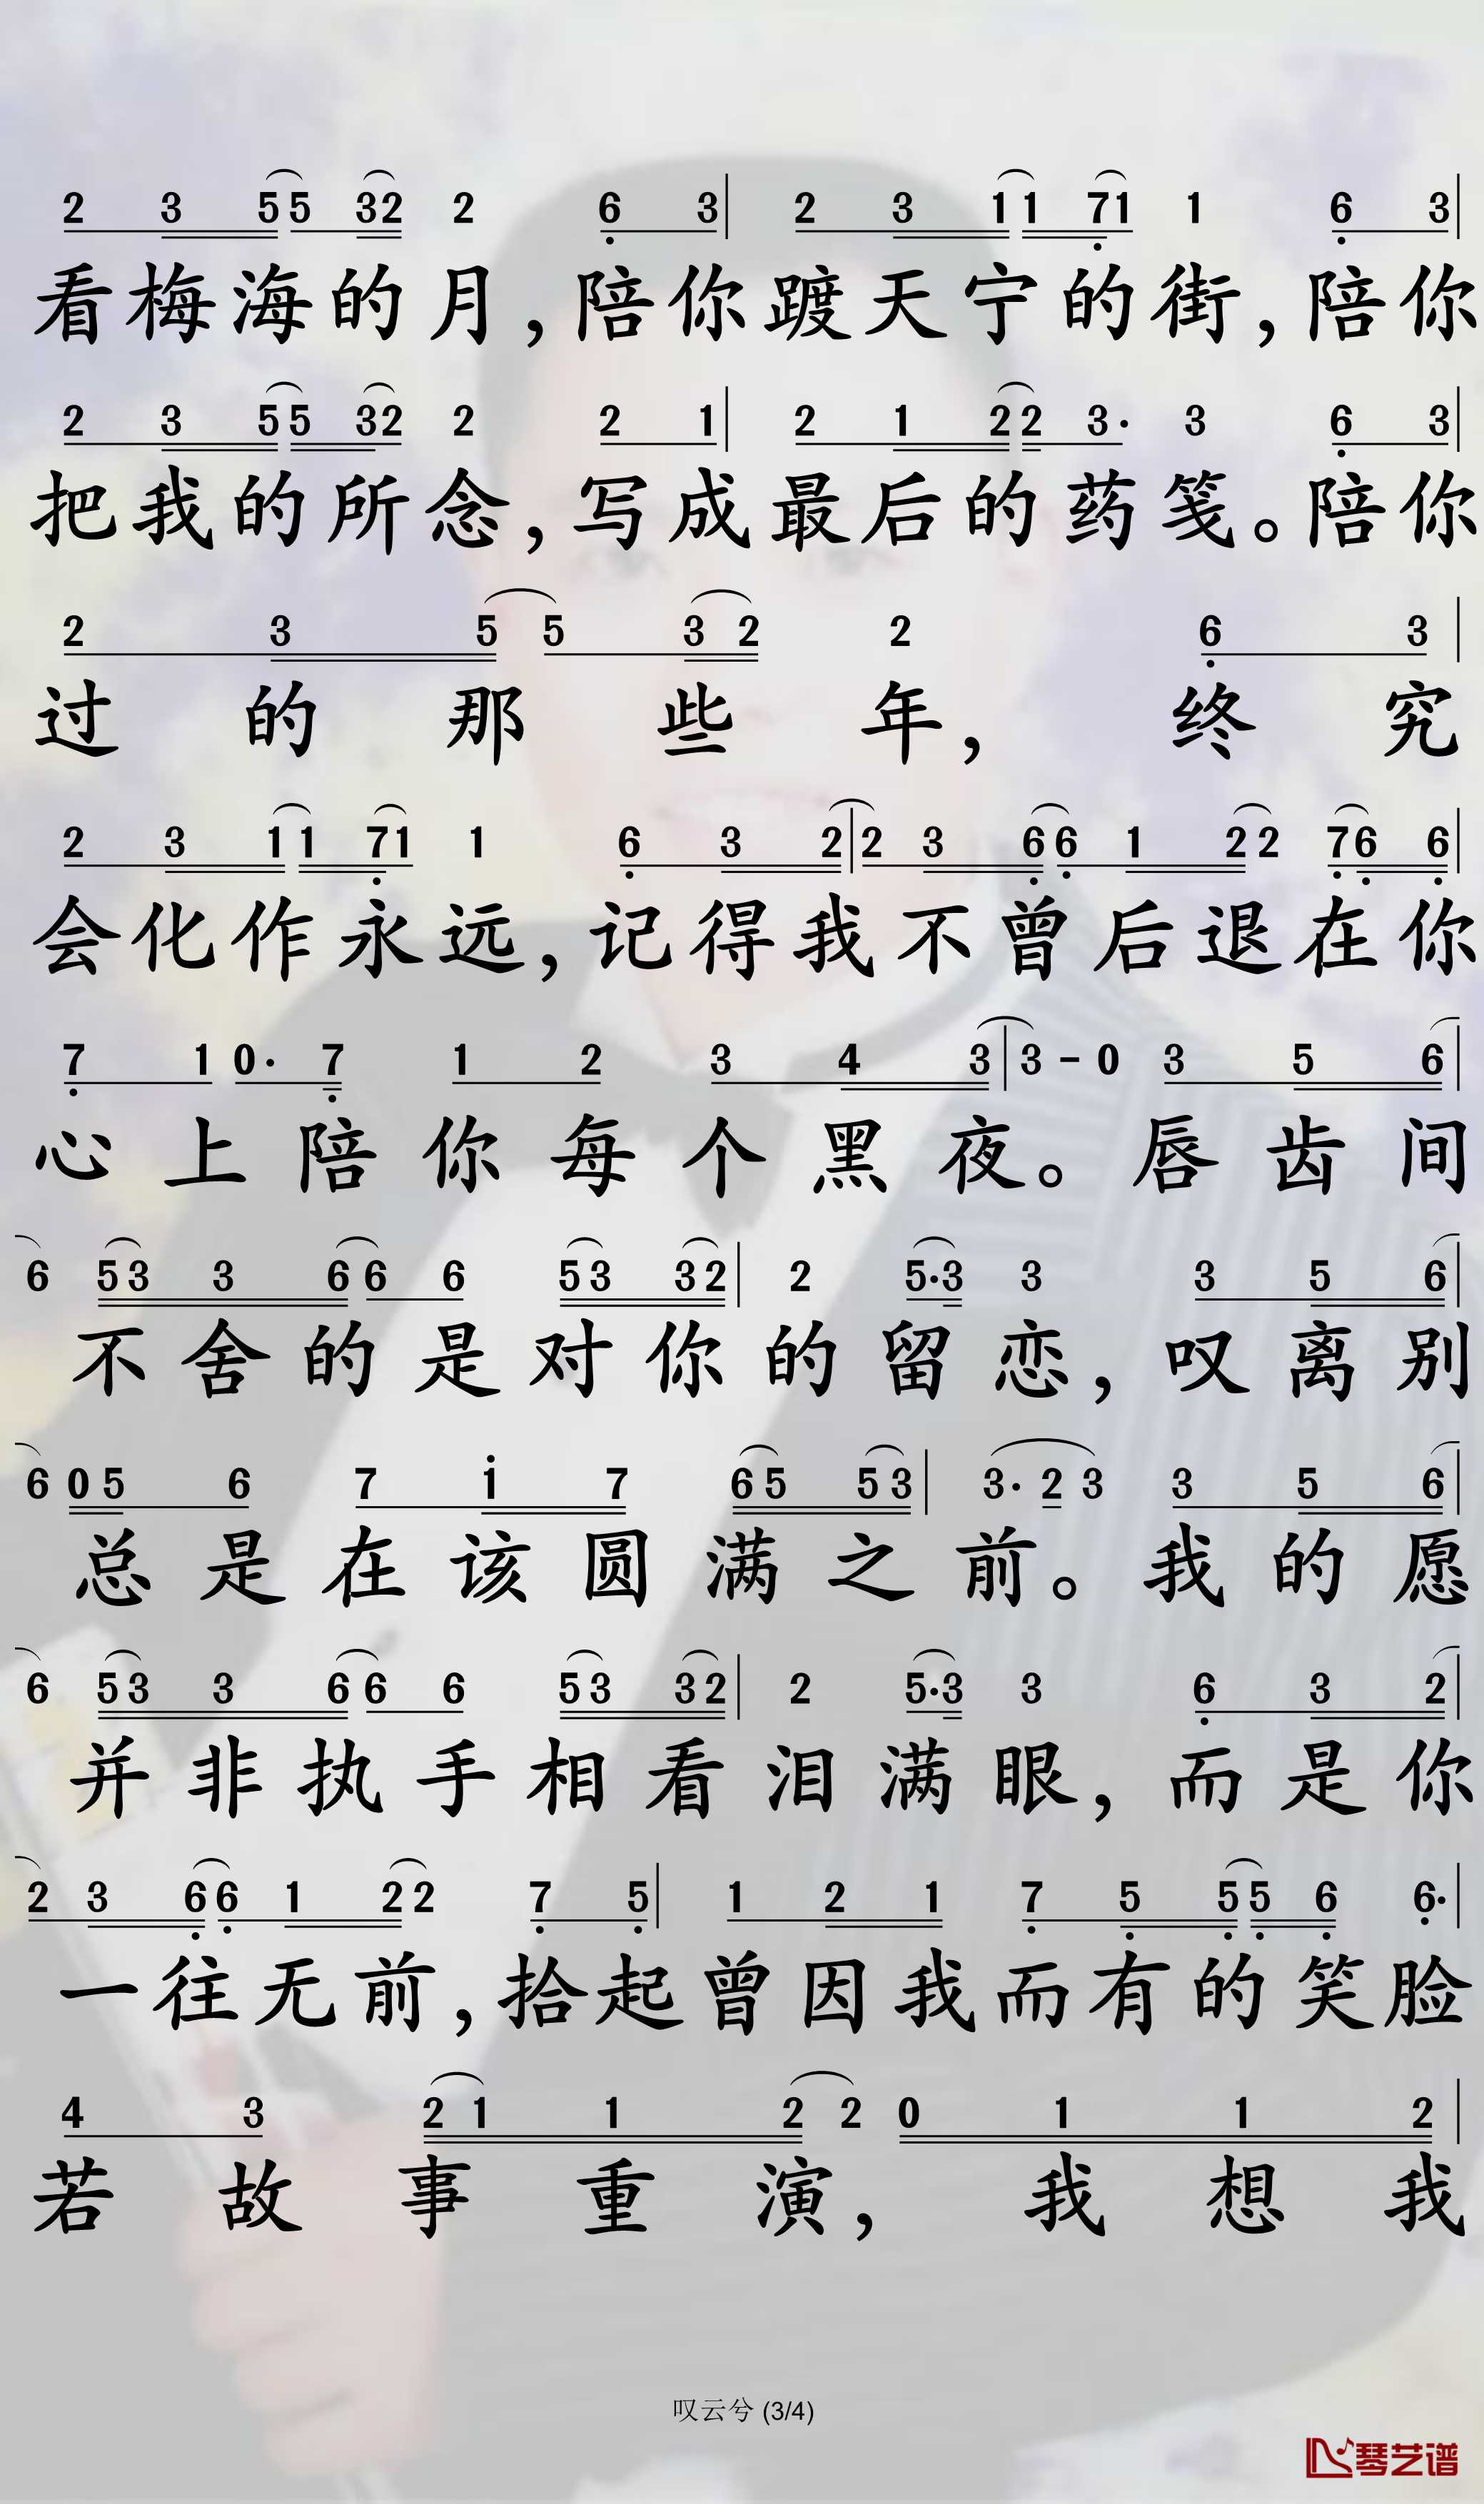 2 3 5 5 3 2 2 6 3 | 2 3 1 1 7 1 1 6 3 |
看梅海的月,陪你踱天宁的街,陪你
2 3 5 5 3 2 2 2 1 | 2 1 2 2 3· 3 6 3 |
把我的所念,写成最后的药笺。陪你
2 3 5 5 3 2 2 6 3 |
过的那些年,终究
2 3 1 1 7 1 1 6 3 2 | 2 3 6 6 1 2 2 7 6 6 |
会化作永远,记得我不曾后退在你
7 1 0· 7 1 2 3 4 3 | 3 - 0 3 5 6 |
心上陪你每个黑夜。唇齿间
6 5 3 3 6 6 6 5 3 3 2 | 2 5·3 3 3 5 6 |
不舍的是对你的留恋,叹离别
6 0 5 6 7 i 7 6 5 5 3 | 3· 2 3 3 5 6 |
总是在该圆满之前。我的愿
6 5 3 3 6 6 6 5 3 3 2 | 2 5·3 3 6 3 2 |
并非执手相看泪满眼,而是你
2 3 6 6 1 2 2 7 5 | 1 2 1 7 5 5 5 6 6· |
一往无前,拾起曾因我而有的笑脸
4 3 2 1 1 2 2 0 1 1 2 |
若故事重演,我想我
叹云兮 (3/4)
琴艺谱